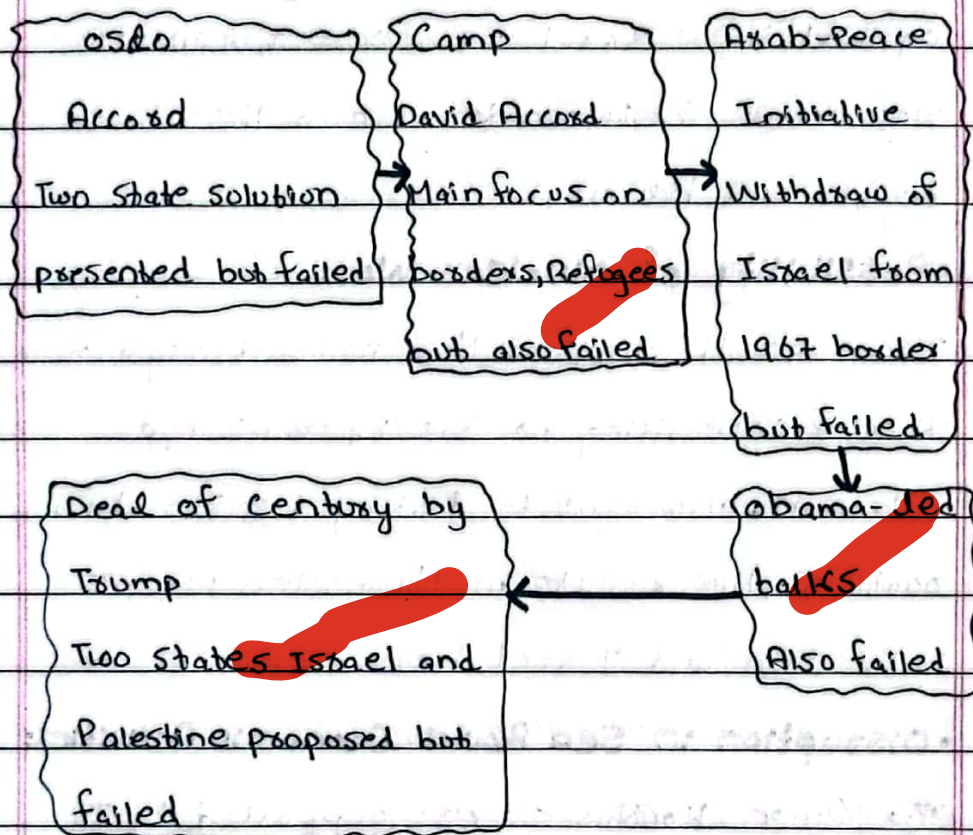 Oslo
Accord
Two State solution
presented but failed
Camp
David Accord
Main focus on
borders, Refugees
but also failed
Arab-Peace
Initiative
Withdraw of
Israel from
1967 border
but failed
Obama-led
talks
Also failed
Deal of Century by
Trump
Two States Israel and
Palestine proposed but
failed